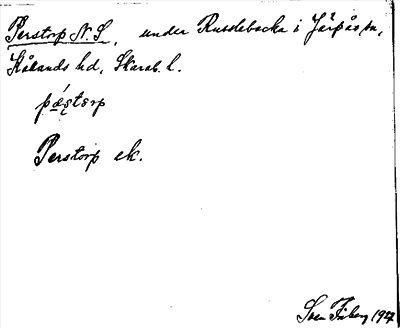 Perstorp N. S., under Russlebacka i Järpås sn,
Kålands hd, Skarab. l.
pǽs̨torp
Perstorp ek.